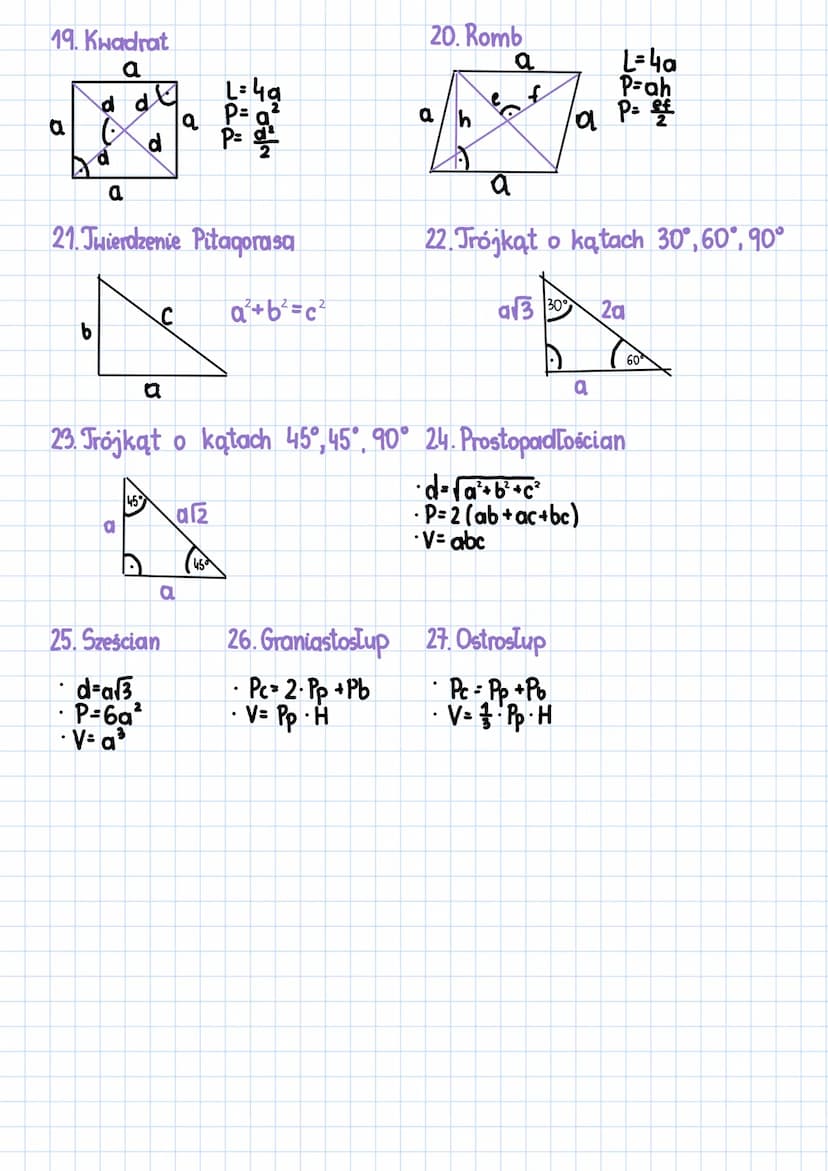 19. Kwadrat
a
a
d d
d
d
a
a
L=4a
P=a²
P=d²/2
20. Romb
a
a
h
e
f
a
a
L=4a
P=ah
P=ef/2
21. Twierdzenie Pitagorasa
b
c
a
a²+b²=c²
22. Trójkąt o kątach 30°, 60°, 90°
a√3
30°
2a
60°
a
23. Trójkąt o kątach 45°, 45°, 90°
45°
a
a√2
45°
a
24. Prostopadłościan
· d=√a²+b²+c²
· P=2(ab+ac+bc)
· V=abc
25. Sześcian
· d=a√3
· P=6a²
· V=a³
26. Graniastosłup
· Pc=2·Pp+Pb
· V=Pp·H
27. Ostrosłup
· Pc=Pp+Pb
· V=1/3·Pp·H